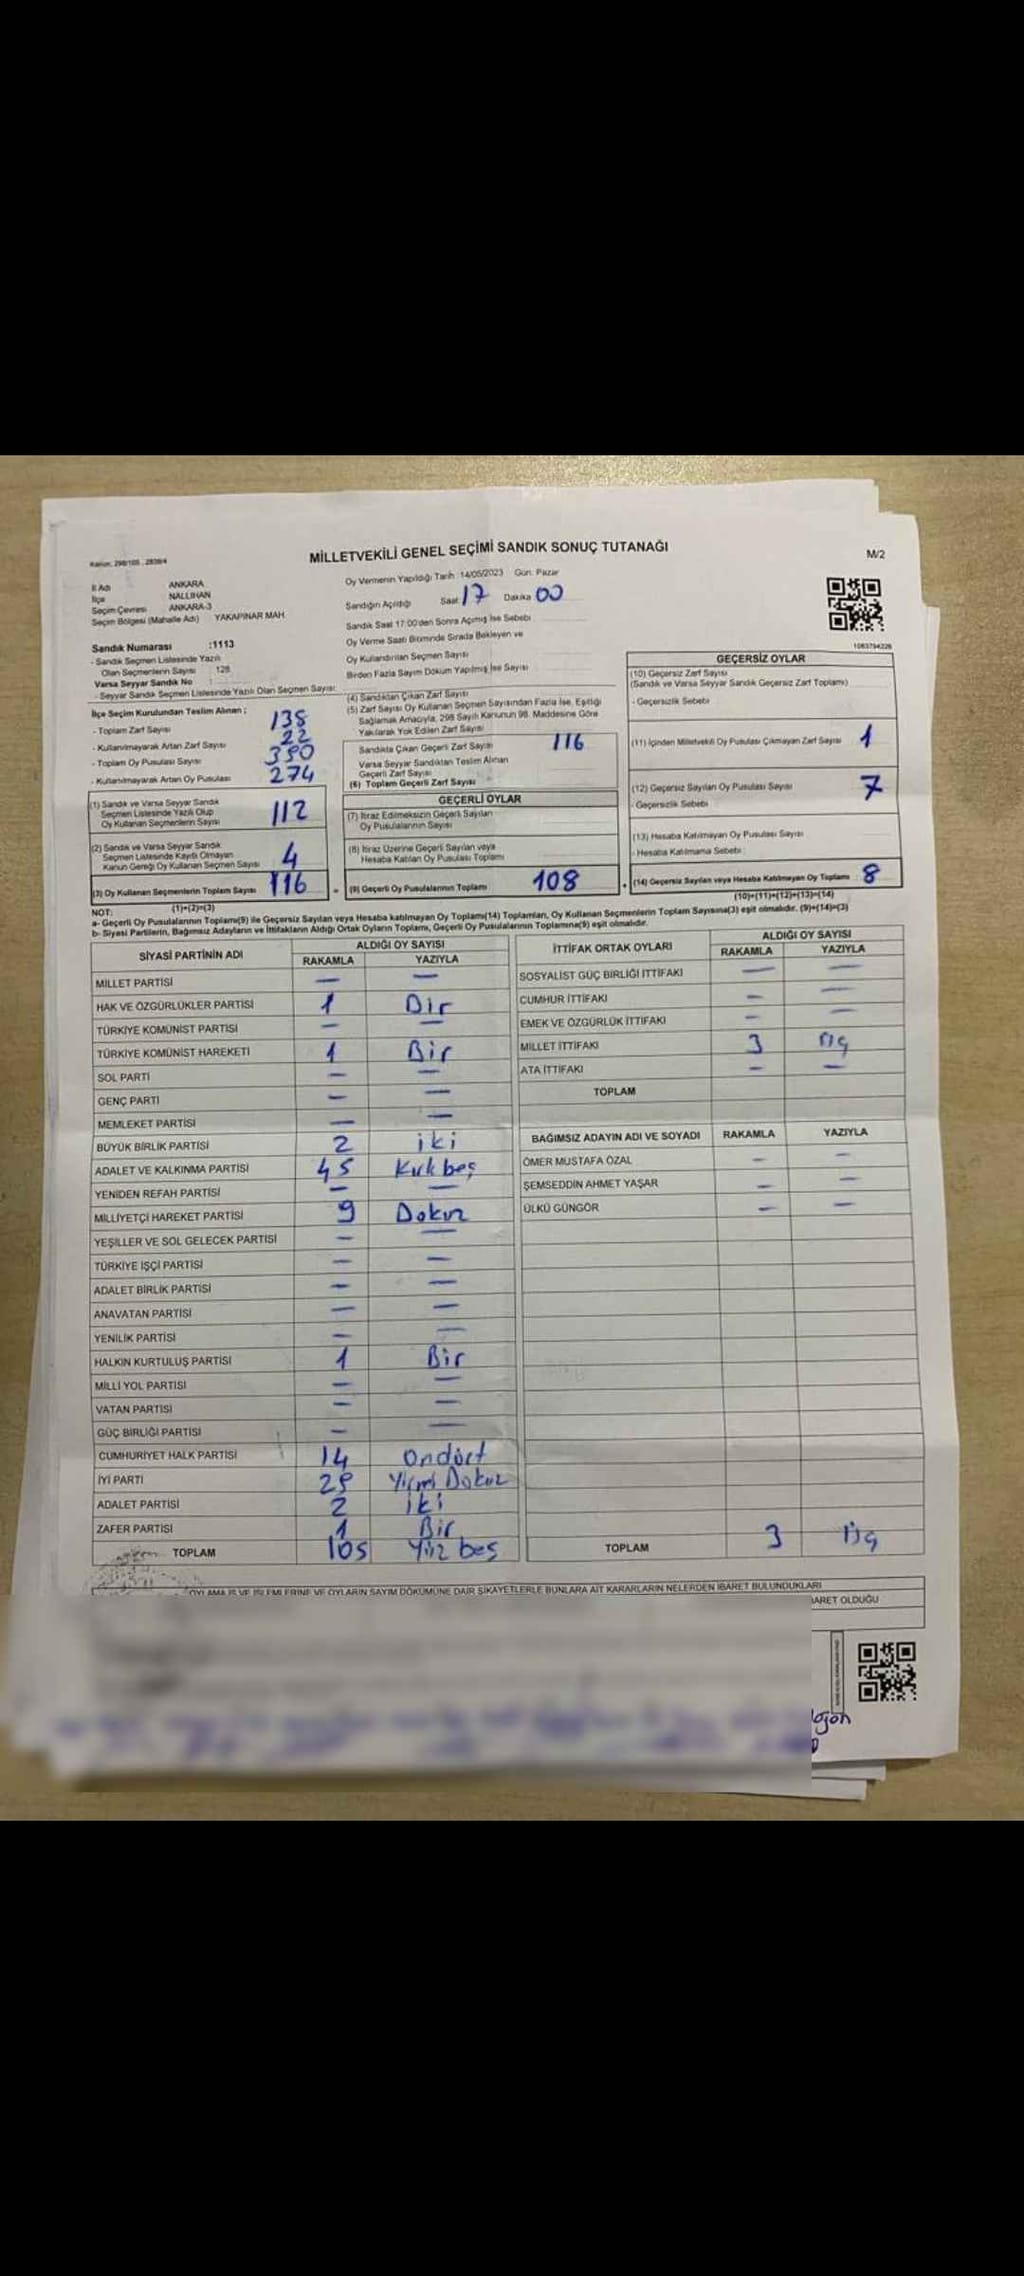 Kanun: 298/105 , 2839/4
MİLLETVEKİLİ GENEL SEÇİMİ SANDIK SONUÇ TUTANAĞI
M/2
İl Adı ANKARA
İlçe NALLIHAN
Seçim Çevresi ANKARA-3
Seçim Bölgesi (Mahalle Adı) YAKAPINAR MAH
Sandık Numarası :1113
- Sandık Seçmen Listesinde Yazılı
Olan Seçmenlerin Sayısı 128
Varsa Seyyar Sandık No
- Seyyar Sandık Seçmen Listesinde Yazılı Olan Seçmen Sayısı:
Oy Vermenin Yapıldığı Tarih :14/05/2023 Gün: Pazar
Sandığın Açıldığı Saat 17 Dakika 00
Sandık Saat 17:00'den Sonra Açılmış İse Sebebi
Oy Verme Saati Bitiminde Sırada Bekleyen ve
Oy Kullandırılan Seçmen Sayısı
Birden Fazla Sayım Döküm Yapılmış İse Sayısı
1083794226
İlçe Seçim Kurulundan Teslim Alınan ;
- Toplam Zarf Sayısı 138
- Kullanılmayarak Artan Zarf Sayısı 22
- Toplam Oy Pusulası Sayısı 390
- Kullanılmayarak Artan Oy Pusulası 274
(1) Sandık ve Varsa Seyyar Sandık
Seçmen Listesinde Yazılı Olup
Oy Kullanan Seçmenlerin Sayısı 112
(2) Sandık ve Varsa Seyyar Sandık
Seçmen Listesinde Kayıtlı Olmayan
Kanun Gereği Oy Kullanan Seçmen Sayısı 4
(3) Oy Kullanan Seçmenlerin Toplam Sayısı 116
(1)+(2)=(3)
(4) Sandıktan Çıkan Zarf Sayısı
(5) Zarf Sayısı Oy Kullanan Seçmen Sayısından Fazla İse, Eşitliği
Sağlamak Amacıyla, 298 Sayılı Kanunun 98. Maddesine Göre
Yakılarak Yok Edilen Zarf Sayısı
Sandıkta Çıkan Geçerli Zarf Sayısı 116
Varsa Seyyar Sandıktan Teslim Alınan
Geçerli Zarf Sayısı
(6) Toplam Geçerli Zarf Sayısı
GEÇERLİ OYLAR
(7) İtiraz Edilmeksizin Geçerli Sayılan
Oy Pusulalarının Sayısı
(8) İtiraz Üzerine Geçerli Sayılan veya
Hesaba Katılan Oy Pusulası Toplamı
= (9) Geçerli Oy Pusulalarının Toplamı 108
GEÇERSİZ OYLAR
(10) Geçersiz Zarf Sayısı
(Sandık ve Varsa Seyyar Sandık Geçersiz Zarf Toplamı)
- Geçersizlik Sebebi
(11) İçinden Milletvekili Oy Pusulası Çıkmayan Zarf Sayısı 1
(12) Geçersiz Sayılan Oy Pusulası Sayısı 7
- Geçersizlik Sebebi
(13) Hesaba Katılmayan Oy Pusulası Sayısı
- Hesaba Katılmama Sebebi :
+ (14) Geçersiz Sayılan veya Hesaba Katılmayan Oy Toplamı 8
(10)+(11)+(12)+(13)=(14)
NOT:
a- Geçerli Oy Pusulalarının Toplamı(9) ile Geçersiz Sayılan veya Hesaba katılmayan Oy Toplamı(14) Toplamları, Oy Kullanan Seçmenlerin Toplam Sayısına(3) eşit olmalıdır. (9)+(14)=(3)
b- Siyasi Partilerin, Bağımsız Adayların ve İttifakların Aldığı Ortak Oyların Toplamı, Geçerli Oy Pusulalarının Toplamına(9) eşit olmalıdır.
SİYASİ PARTİNİN ADI ALDIĞI OY SAYISI
RAKAMLA YAZIYLA
MİLLET PARTİSİ — —
HAK VE ÖZGÜRLÜKLER PARTİSİ 1 Bir
TÜRKİYE KOMÜNİST PARTİSİ — —
TÜRKİYE KOMÜNİST HAREKETİ 1 Bir
SOL PARTİ — —
GENÇ PARTİ — —
MEMLEKET PARTİSİ — —
BÜYÜK BİRLİK PARTİSİ 2 iki
ADALET VE KALKINMA PARTİSİ 45 Kırkbeş
YENİDEN REFAH PARTİSİ — —
MİLLİYETÇİ HAREKET PARTİSİ 9 Dokuz
YEŞİLLER VE SOL GELECEK PARTİSİ — —
TÜRKİYE İŞÇİ PARTİSİ — —
ADALET BİRLİK PARTİSİ — —
ANAVATAN PARTİSİ — —
YENİLİK PARTİSİ — —
HALKIN KURTULUŞ PARTİSİ 1 Bir
MİLLİ YOL PARTİSİ — —
VATAN PARTİSİ — —
GÜÇ BİRLİĞİ PARTİSİ — —
CUMHURİYET HALK PARTİSİ 14 Ondört
İYİ PARTİ 29 Yirmi Dokuz
ADALET PARTİSİ 2 iki
ZAFER PARTİSİ 1 Bir
TOPLAM 105 Yüz beş
İTTİFAK ORTAK OYLARI ALDIĞI OY SAYISI
RAKAMLA YAZIYLA
SOSYALİST GÜÇ BİRLİĞİ İTTİFAKI — —
CUMHUR İTTİFAKI — —
EMEK VE ÖZGÜRLÜK İTTİFAKI — —
MİLLET İTTİFAKI 3 üç
ATA İTTİFAKI — —
TOPLAM
BAĞIMSIZ ADAYIN ADI VE SOYADI RAKAMLA YAZIYLA
ÖMER MUSTAFA ÖZAL — —
ŞEMSEDDİN AHMET YAŞAR — —
ÜLKÜ GÜNGÖR — —
TOPLAM 3 üç
OYLAMA İŞ VE İŞLEMLERİNE VE OYLARIN SAYIM DÖKÜMÜNE DAİR ŞİKAYETLERLE BUNLARA AİT KARARLARIN NELERDEN İBARET BULUNDUKLARI
OLDUĞU